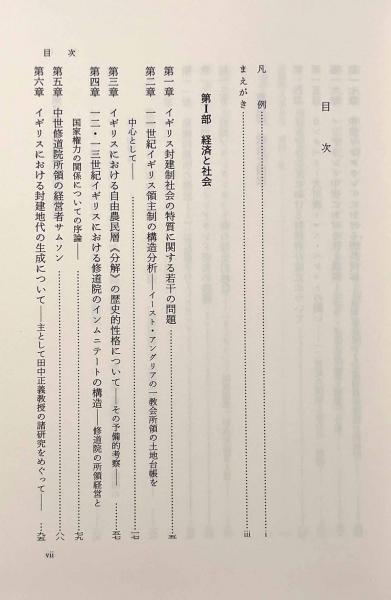 目次
目次
凡例……………i
まえがき……………iii
第Ⅰ部 経済と社会
第一章 イギリス封建制社会の特質に関する若干の問題……………五
第二章 一一世紀イギリス領主制の構造分析――イースト・アングリアの一教会所領の土地台帳を
中心として――……………一七
第三章 イギリスにおける自由農民層《分解》の歴史的性格について――その予備的考察――……………五七
第四章 一二・一三世紀イギリスにおける修道院のインムニテートの構造――修道院の所領経営と
国家権力の関係についての序論――……………七九
第五章 中世修道院所領の経営者サムソン……………八八
第六章 イギリスにおける封建地代の生成について――主として田中正義教授の諸研究をめぐって――……………九五
vii